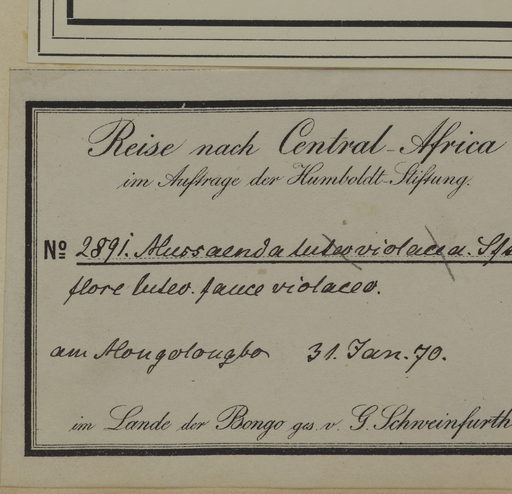 Reise nach Central-Africa
im Auftrage der Humboldt-Stiftung.
No 2891. Mussaenda luteoviolacea.
flore luteo. fauce violaceo.
am Mongolongbo 31. Jan. 70.
im Lande der Bongo ges. v. G. Schweinfurth